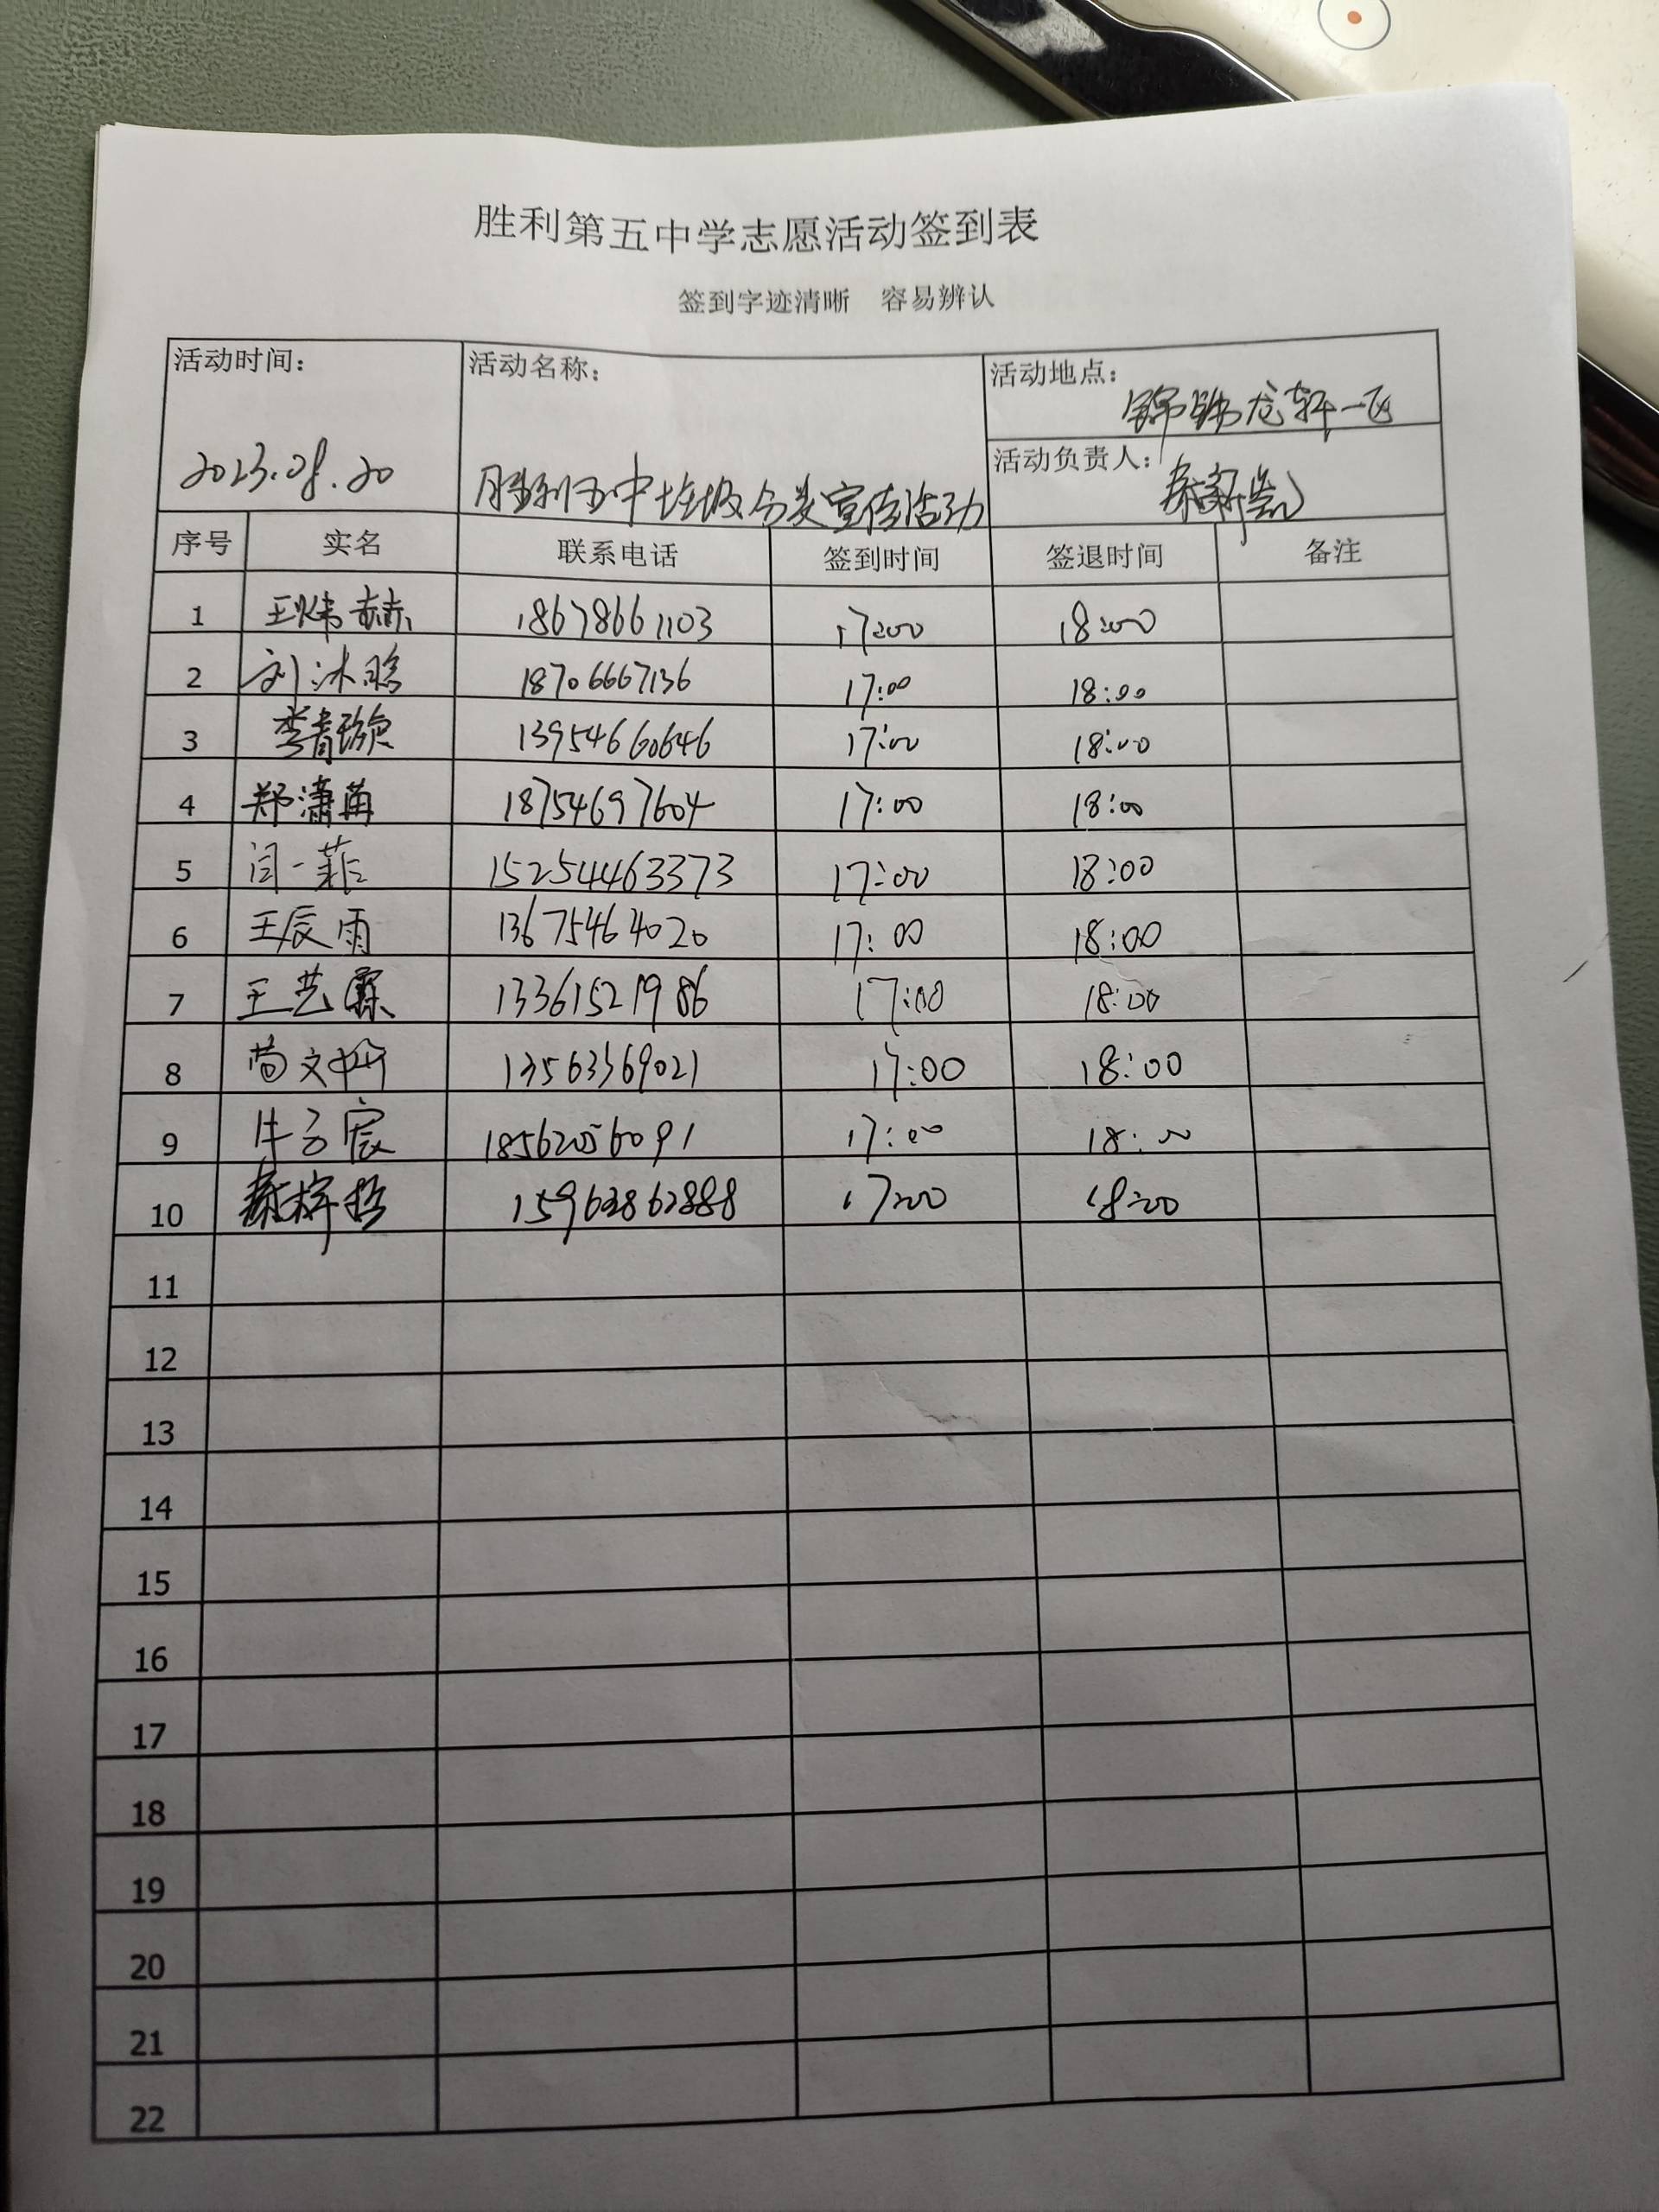 胜利第五中学志愿活动签到表
签到字迹清晰 容易辨认
活动时间: 活动名称: 活动地点:
锦绣龙轩一区
活动负责人:
2023.08.20 胜利五中垃圾分类宣传活动
序号 实名 联系电话 签到时间 签退时间 备注
1 王炜赫 18678661103 17:00 18:00
2 刘沐 18706667136 17:00 18:00
3 李青 13954660646 17:00 18:00
4 郑潇苒 18754697604 17:00 18:00
5 闫一菲 15254463373 17:00 18:00
6 王辰雨 13675464020 17:00 18:00
7 王艺霖 13361521986 17:00 18:00
8 文 13563369021 17:00 18:00
9 牛子宸 18562056091 17:00 18:00
10 15963862888 17:00 18:00
11
12
13
14
15
16
17
18
19
20
21
22